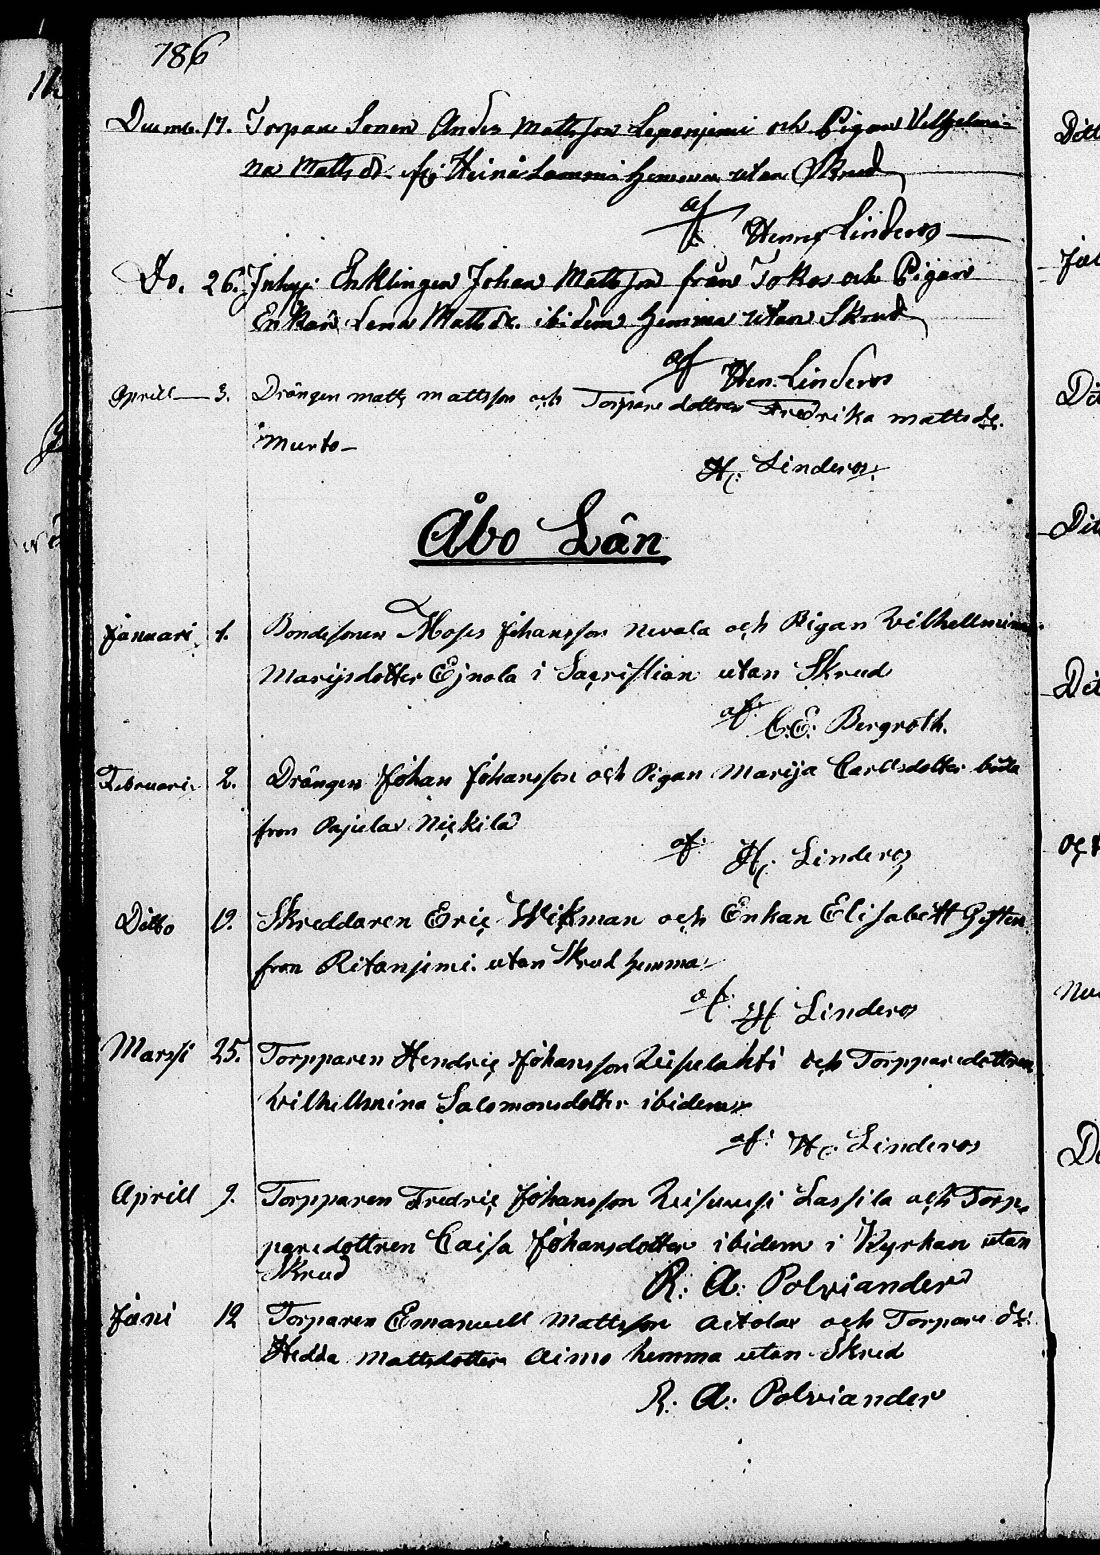 786
Decemb. 17. Torpare Sonen Anders Mattsson Lepenjemi och Pigan Vilhjelmi=
na Matts dr. fr: Heinä Lammi hemma utan Skrud
af Henrs Linderos
Do. 26. Inhys: Enklingen Johan Mattsson från Tokos och Pigan
Enkan Lena Matts dr. ibidem hemma utan Skrud
af Hen. Linderos
Aprill 3. Drängen matts mattsson och Torpare dottren Fredrika matts dr.
Murto
H: Linderos.
Åbo Län
Januari 1. Bondesonen Moses Johansson Nevala och Pigan Vilhellmina
Marijsdotter Ejnola i Sacristian utan Skrud
af: C: E: Bergroth.
Februari 2. Drängen Johan Johansson och Pigan Marija Carlsdotter båda
fron Pajula Nickilä
af: H: Linderos
Ditto 19. Skreddaren Eric Wikman och Enkan Elisabett
fron Ritanjemi. utan Skrud hemma
af: H Linderos
Marssi 25. Torpparen Hendric Johansson och Torpparedottren
Vilhellmina Salomonsdotter ibidem
af: H: Linderos
Aprill 9. Torpparen Fredric Johansson Lassila och Torp=
paredottren Caisa Johansdotter ibidem i Kyrkan utan
Skrud
R: A: Polviander
Juni 12 Torparen Emanuell Mattsson Aitola och Torpare dr:
Hedda Mattsdotter Aimo hemma utan Skrud
R: A: Polviander